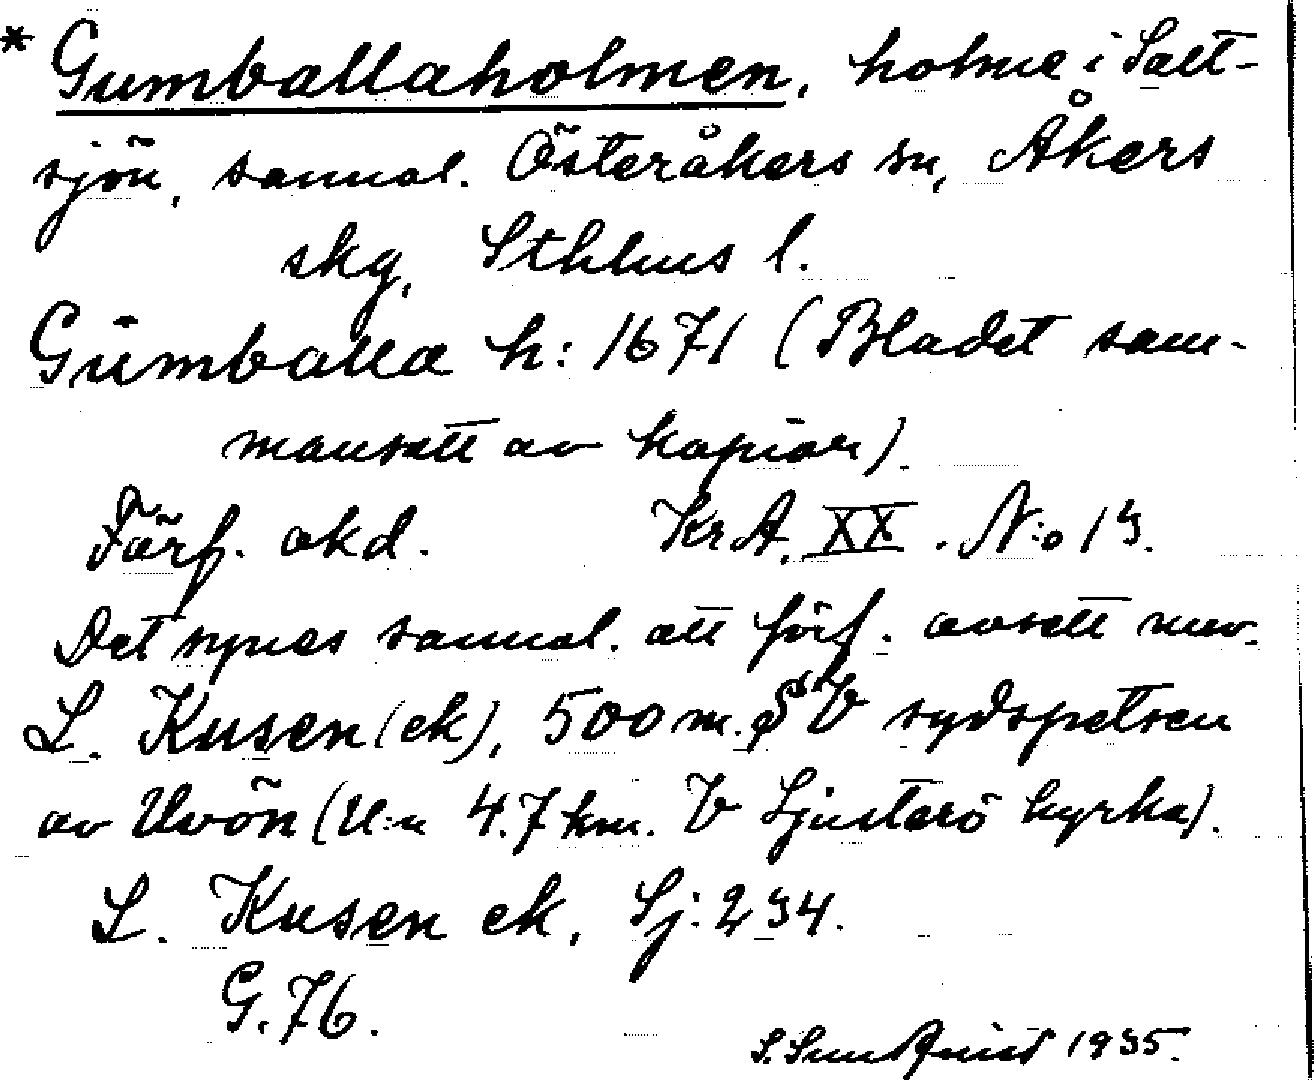 * Gumballaholmen, holme i Salt-
sjön, sannol. Österåkers sn, Åkers
skg, Sthlms l.
Gumballa h: 1671 (Bladet sam-
mansatt av kopior).
Förf. okd. KrA, XX. N:o 13.
Det synes sannol. att förf. avsett nuv.
L. Kusen (ek), 500 m. SV sydspetsen
av Uvön (U:n 4.7 km. V Ljusterö kyrka).
L. Kusen ek, Sj: 234.
G. 76.
S. 1935.